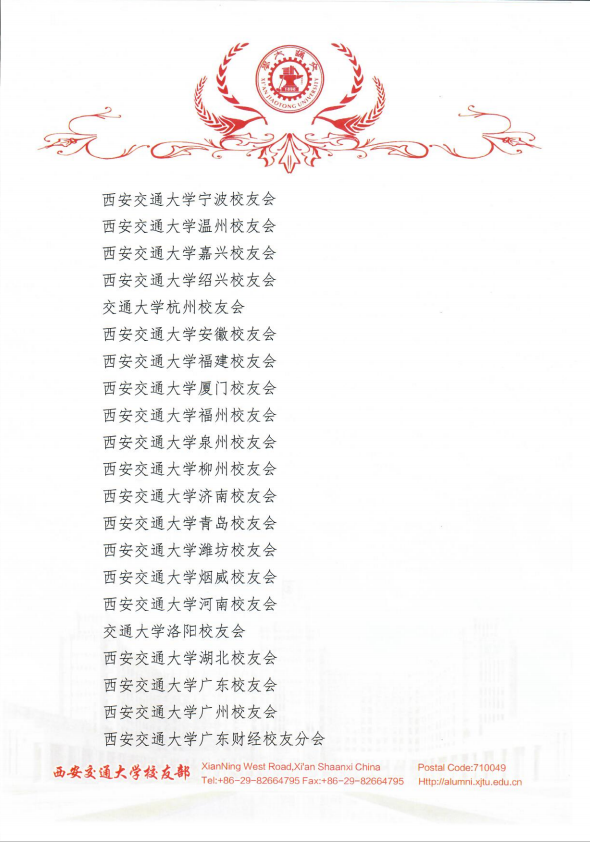 XI'AN JIAOTONG UNIVERSITY
西安交通大学宁波校友会
西安交通大学温州校友会
西安交通大学嘉兴校友会
西安交通大学绍兴校友会
交通大学杭州校友会
西安交通大学安徽校友会
西安交通大学福建校友会
西安交通大学厦门校友会
西安交通大学福州校友会
西安交通大学泉州校友会
西安交通大学柳州校友会
西安交通大学济南校友会
西安交通大学青岛校友会
西安交通大学潍坊校友会
西安交通大学烟威校友会
西安交通大学河南校友会
交通大学洛阳校友会
西安交通大学湖北校友会
西安交通大学广东校友会
西安交通大学广州校友会
西安交通大学广东财经校友分会
西安交通大学校友部
XianNing West Road,Xi'an Shaanxi China
Postal Code:710049
Tel:+86-29-82664795 Fax:+86-29-82664795
Http://alumni.xjtu.edu.cn